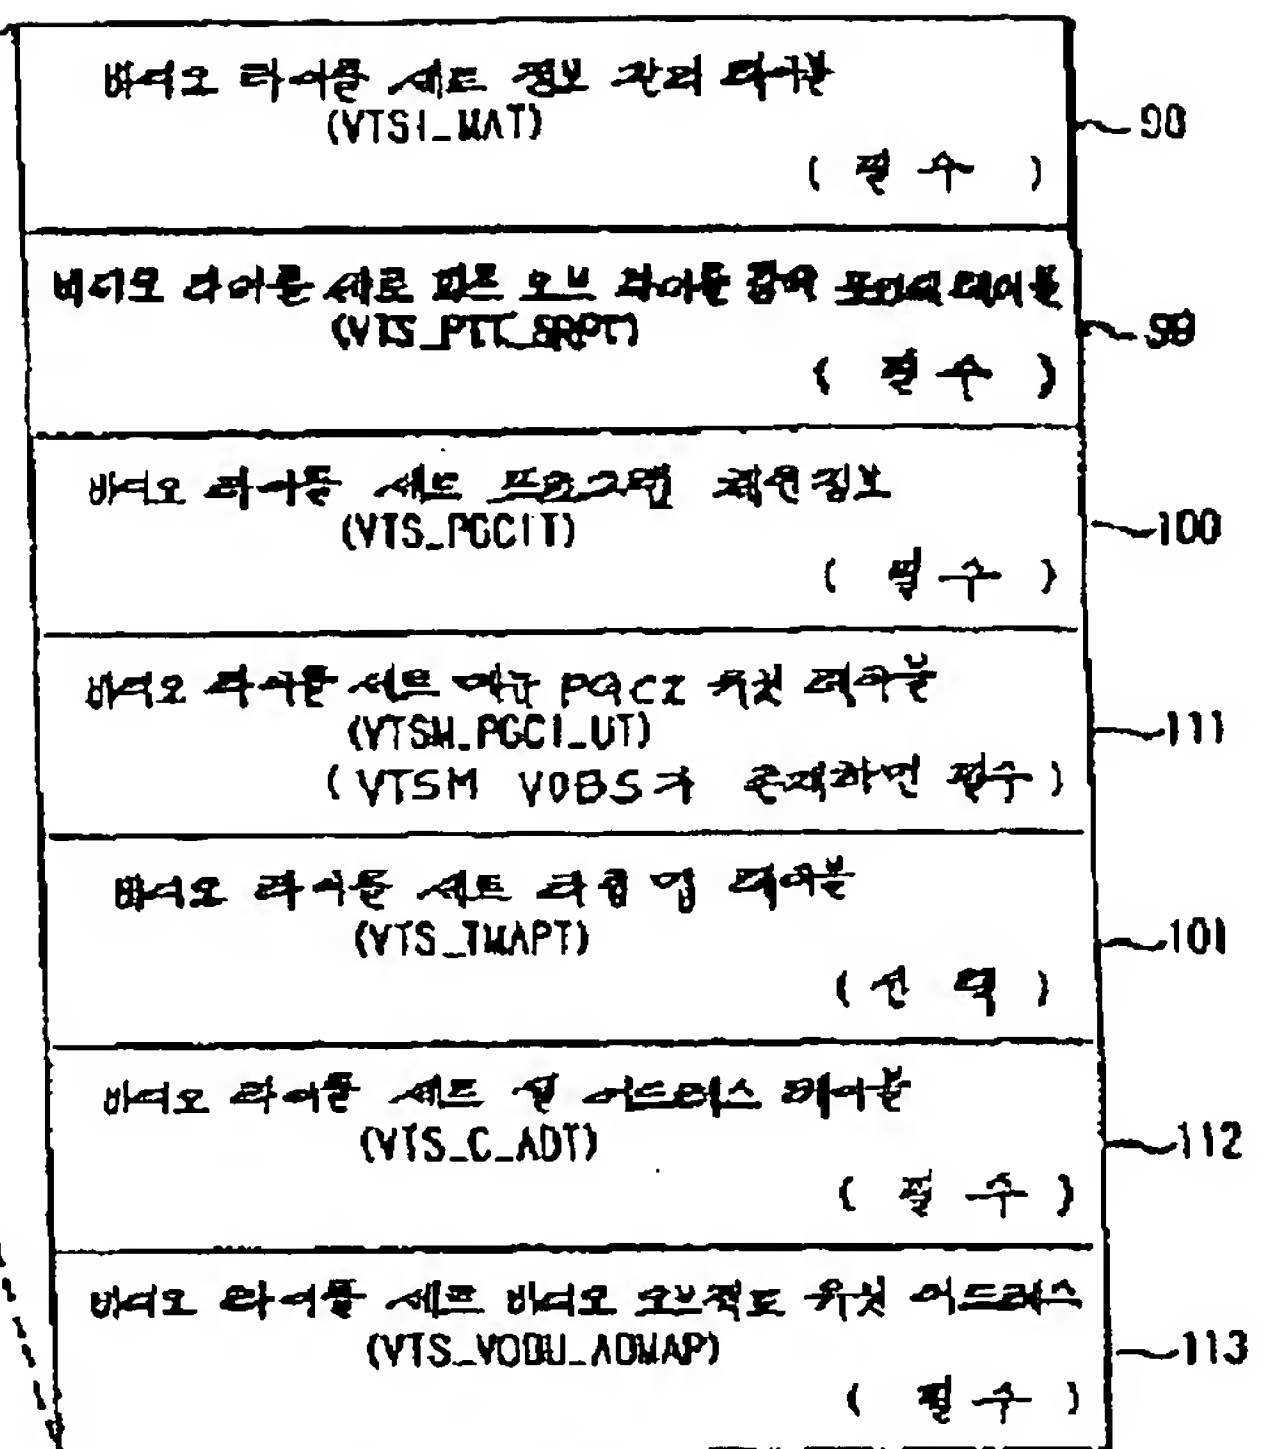 비디오 타이틀 세트 정보 관리 테이블
(VTSI_MAT)
90
( 필 수 )
비디오 타이틀 세트 파트 오브 타이틀 포인터 테이블
(VTS_PTT_SRPT)
99
( 필 수 )
비디오 타이틀 세트 프로그램 체인 정보
(VTS_PGCIT)
100
( 필 수 )
비디오 타이틀 세트 메뉴 PGCI 유닛 테이블
(VTSM_PGCI_UT)
111
( VTSM VOBS가 존재하면 필수 )
비디오 타이틀 세트 타임 맵 테이블
(VTS_TMAPT)
101
( 선 택 )
비디오 타이틀 세트 셀 어드레스 테이블
(VTS_C_ADT)
112
( 필 수 )
비디오 타이틀 세트 비디오 오브젝트 유닛 어드레스
(VTS_VOBU_ADMAP)
113
( 필 수 )